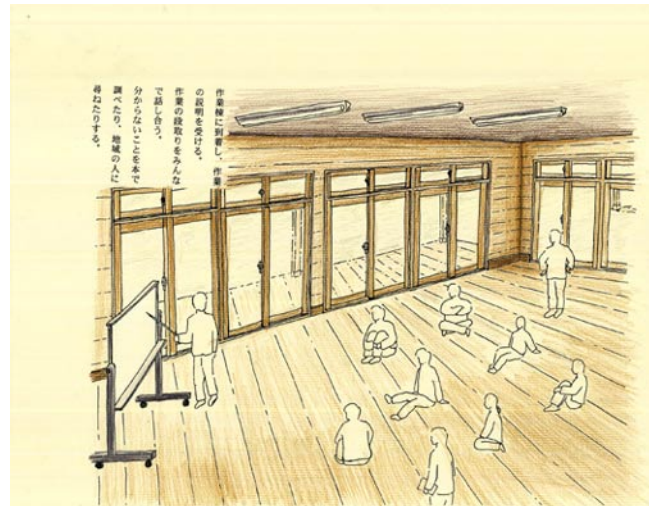 作業棟に到着し、作業
の説明を受ける。
作業の段取りをみんな
で話し合う。
分からないことを本で
調べたり、地域の人に
尋ねたりする。